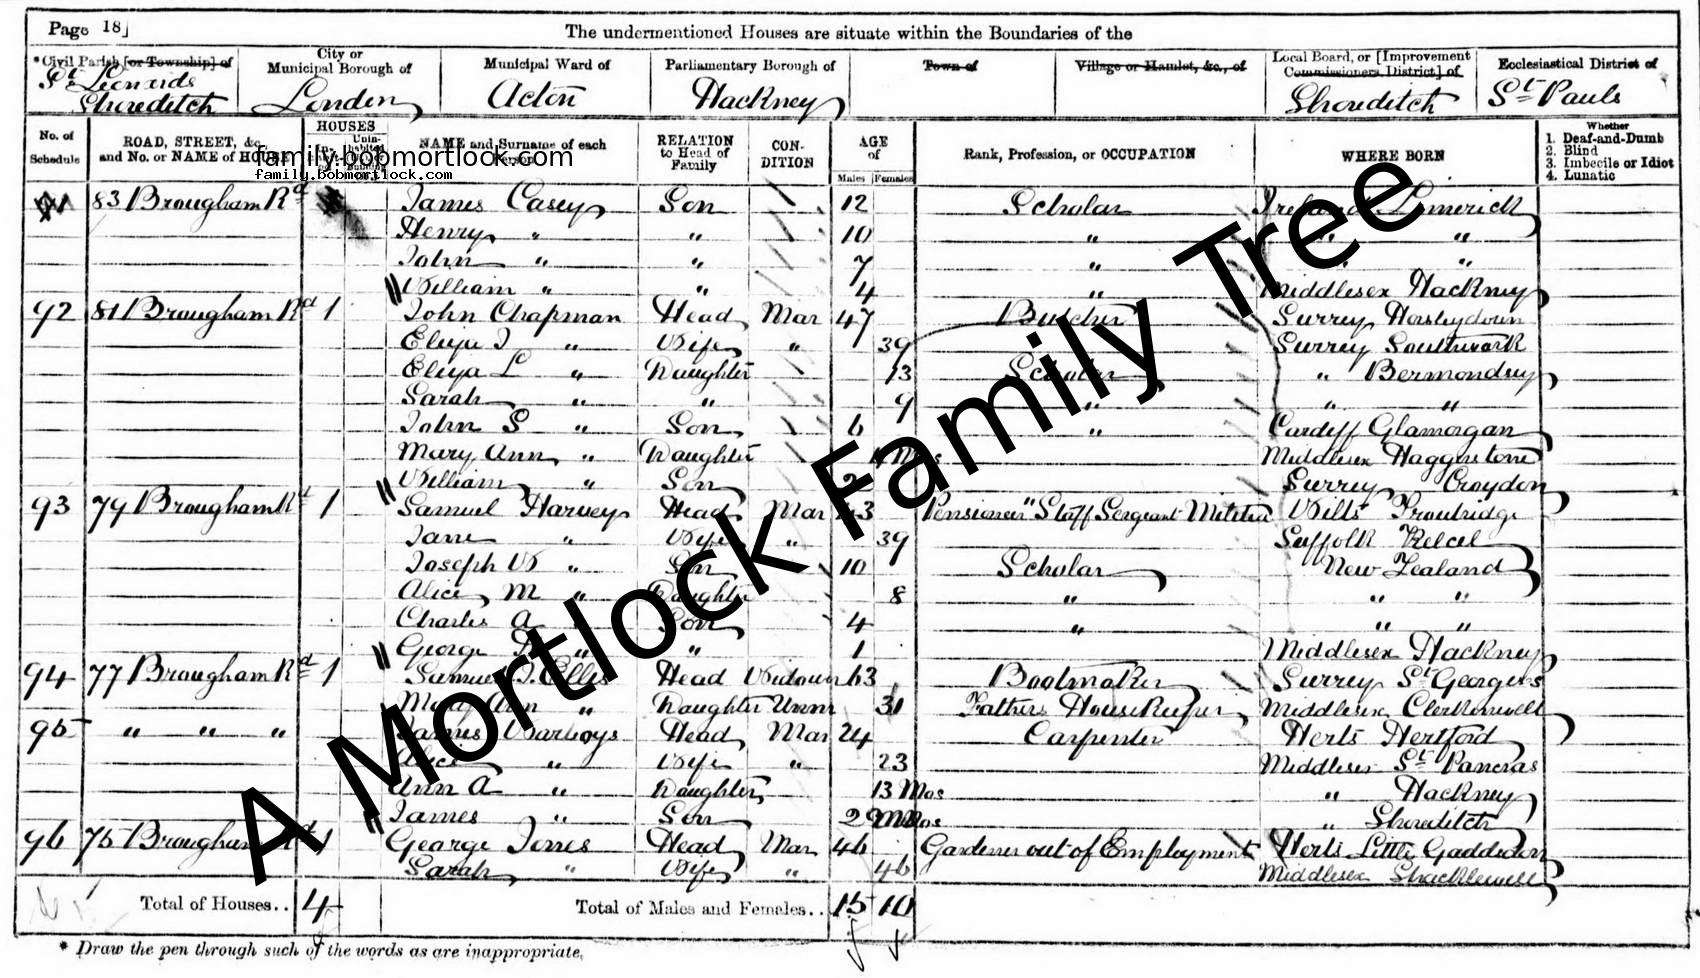 Page 18]
The undermentioned Houses are situate within the Boundaries of the
*Civil Parish [or Township] of
City or Municipal Borough of
Municipal Ward of
Parliamentary Borough of
Town of
Village or Hamlet, &c., of
Local Board, or [Improvement Commissioners District] of
Ecclesiastical District of
St Leonards Shoreditch
London
Acton
Hackney
Shoreditch
St Pauls
No. of Schedule
ROAD, STREET, &c., and No. or NAME of HOUSE
HOUSES
NAME and Surname of each Person
RELATION to Head of Family
CONDITION
AGE of
Males Females
Rank, Profession, or OCCUPATION
WHERE BORN
Whether
1. Deaf-and-Dumb
2. Blind
3. Imbecile or Idiot
4. Lunatic
family.bobmortlock.com
family.bobmortlock.com
91 83 Brougham Rd James Casey Son 12 Scholar Ireland Limerick
Henry " " 10 " " "
John " " 7 " " "
William " " 4 " Middlesex Hackney
92 81 Brougham Rd 1 John Chapman Head Mar 47 Butcher Surrey Horsleydown
Eliza J " Wife " 39 Surrey Southwark
Eliza L " Daughter 13 Scholar " Bermondsey
Sarah " " 9 " " "
John S " Son 6 " Cardiff Glamorgan
Mary Ann " Daughter Mos Middlesex Haggerstone
William " Son 2 Surrey Croydon
93 79 Brougham Rd 1 Samuel Harvey Head Mar 43 Pensioner "Staff Sergeant Militia Wilts Trowbridge
Jane " Wife " 39 Suffolk
Joseph W " Son 10 Scholar New Zealand
Alice M " Daughter 8 " " "
Charles A " Son 4 " " "
George " " 1 Middlesex Hackney
94 77 Brougham Rd 1 Samuel Ellis Head Widower 63 Bootmaker Surrey St Georges
Mary Ann " Daughter Unmr 31 Fathers HouseKeeper Middlesex Clerkenwell
95 " " " James Warboys Head Mar 24 Carpenter Herts Hertford
Alice " Wife " 23 Middlesex St Pancras
Ann A " Daughter 13 Mos " Hackney
James " Son Mos " Shoreditch
96 75 Brougham Rd 1 George Jones Head Mar 46 Gardener out of Employment Herts Little Gaddesdon
Sarah " Wife " 46 Middlesex Shacklewell
Total of Houses.. 4
Total of Males and Females.. 15 10
* Draw the pen through such of the words as are inappropriate.
A Mortlock Family Tree